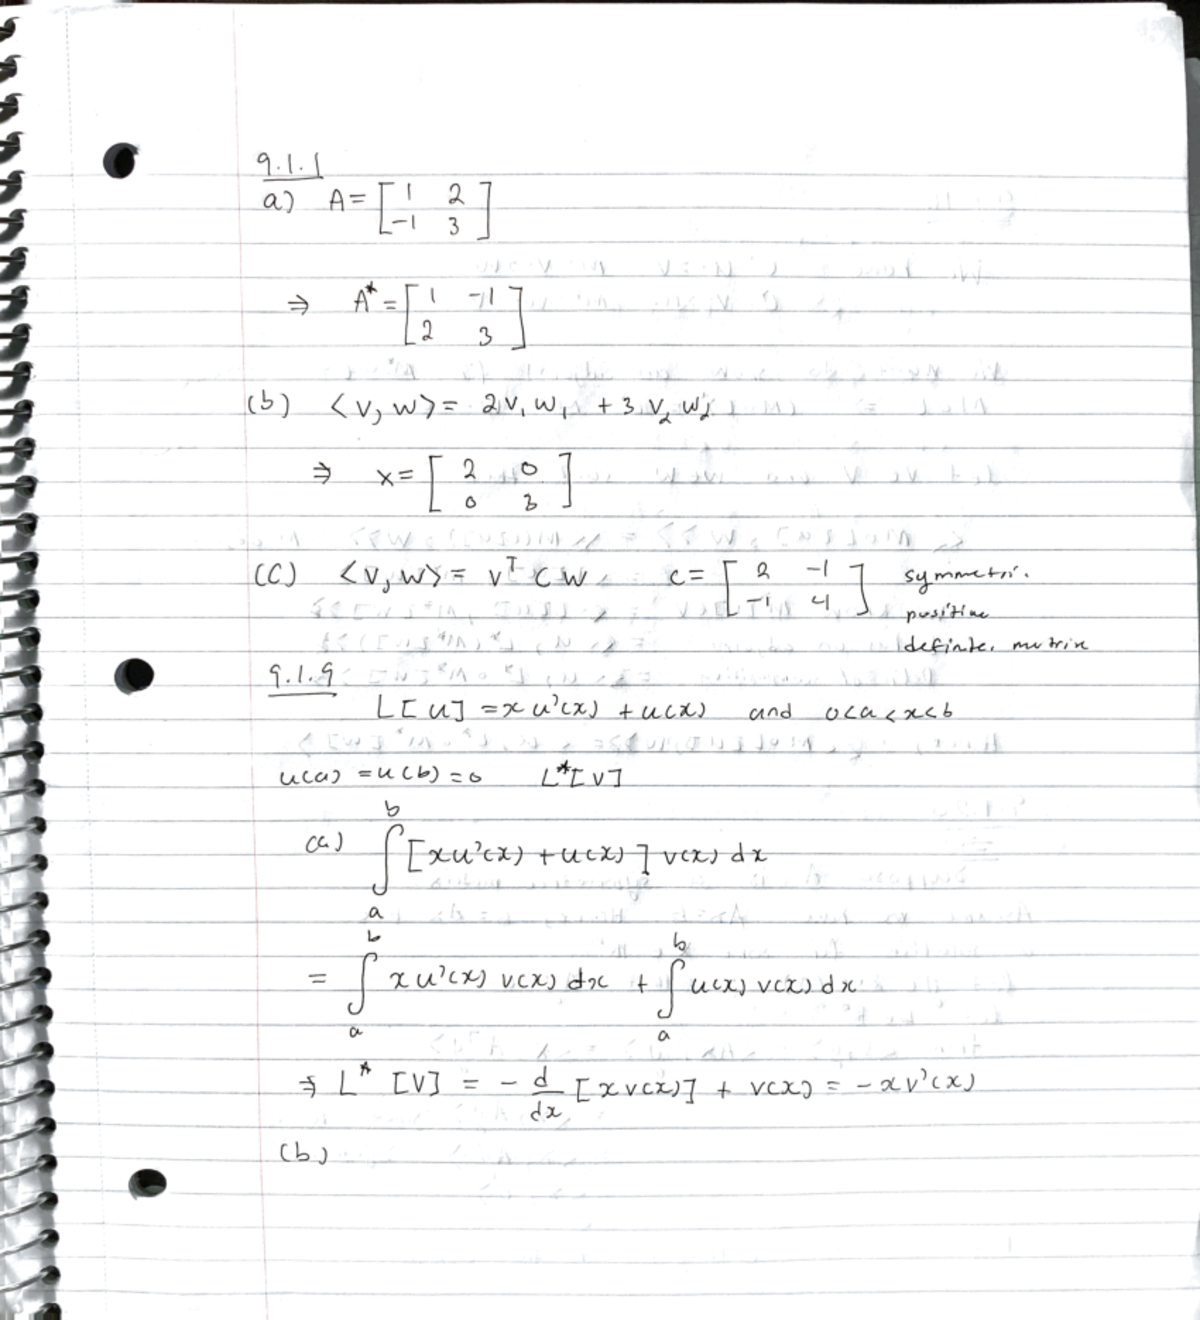 9.1.1
a) A = [ 1 2 ; -1 3 ]
⇒ A* = [ 1 -1 ; 2 3 ]
(b) <v, w> = 2v₁w₁ + 3v₂w₂
⇒ x = [ 2 0 ; 0 3 ]
(C) <v, w> = vᵀ C w c = [ 2 -1 ; -1 4 ] symmetri.
positive
definte. matrix
9.1.9
L[u] = x u'(x) + u(x) and 0<a<x<b
u(a) = u(b) = 0 L*[v]
(a) ∫ₐᵇ [xu'(x) + u(x)] v(x) dx
= ∫ₐᵇ x u'(x) v(x) dx + ∫ₐᵇ u(x) v(x) dx
⇒ L* [v] = - d/dx [x v(x)] + v(x) = -x v'(x)
(b)